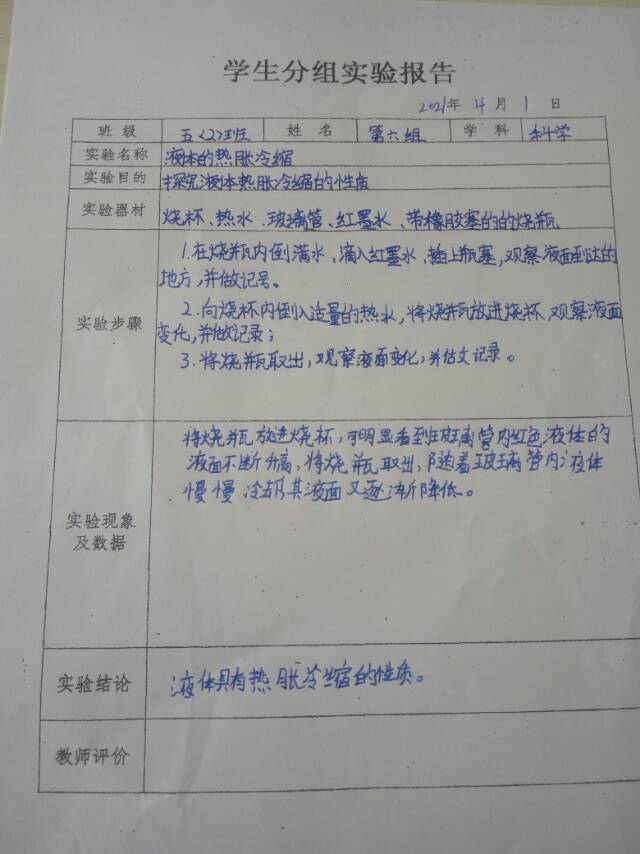 学生分组实验报告
2021年 4 月 1 日
班级 五(2)班 姓名 第六组 学科 科学
实验名称 液体的热胀冷缩
实验目的 探究液体热胀冷缩的性质
实验器材 烧杯、热水、玻璃管、红墨水、带橡胶塞的的烧瓶
1.在烧瓶内倒满水,滴入红墨水,插上瓶塞,观察液面到达的
地方,并做记号。
2.向烧杯内倒入适量的热水,将烧瓶放进烧杯,观察液面
实验步骤
变化,并做记录;
3.将烧瓶取出,观察液面变化,并做文记录。
将烧瓶放进烧杯,可明显看到玻璃管内红色液体的
液面不断升高,将烧瓶取出,随着玻璃管内液体
慢慢冷却其液面又逐渐降低。
实验现象
及数据
实验结论 液体具有热胀冷缩的性质。
教师评价